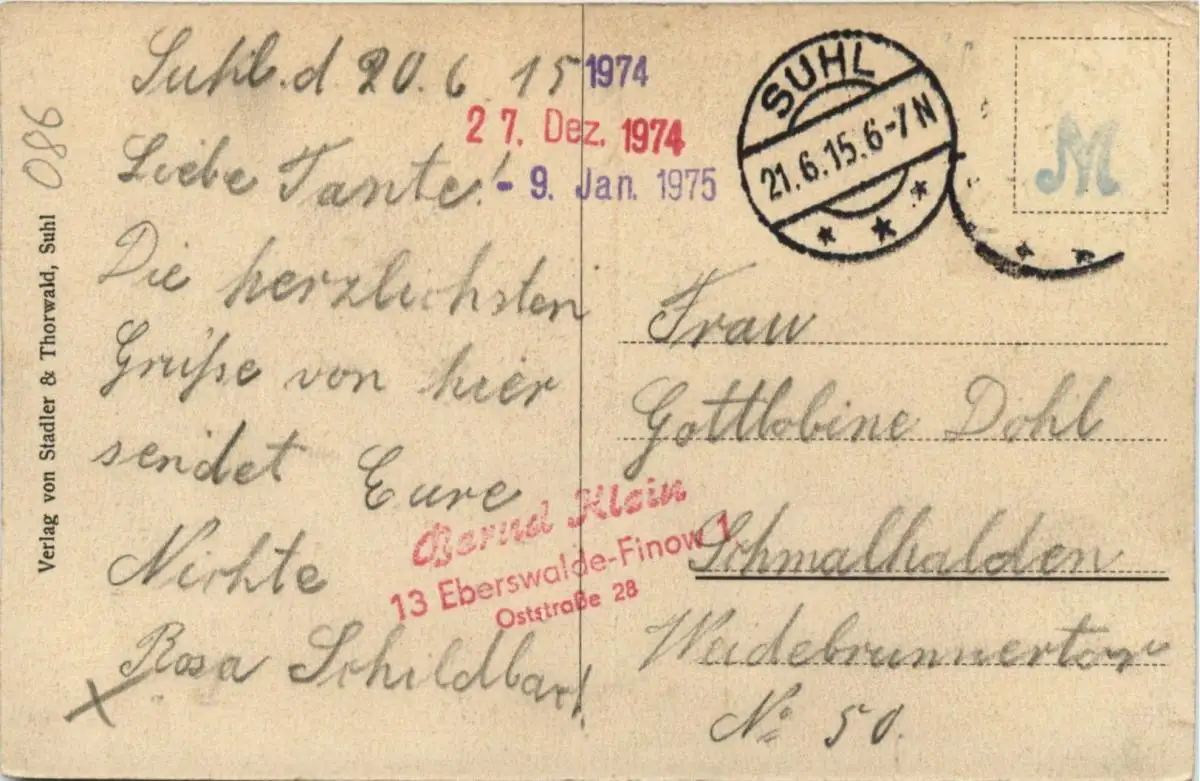 Suhl. d 20. 6. 15
Liebe Tante!
Die herzlichsten
Grüße von hier
sendet Eure
Nichte
Rosa Schildbach
1974
27. Dez. 1974
- 9. Jan. 1975
Bernd Klein
13 Eberswalde-Finow 1
Oststraße 28
SUHL
21.6.15.6-7N
M
Frau
Gottlobine Dohl
Schmalkalden
Weidebrunnertor
No 50.
086
Verlag von Stadler & Thorwald, Suhl